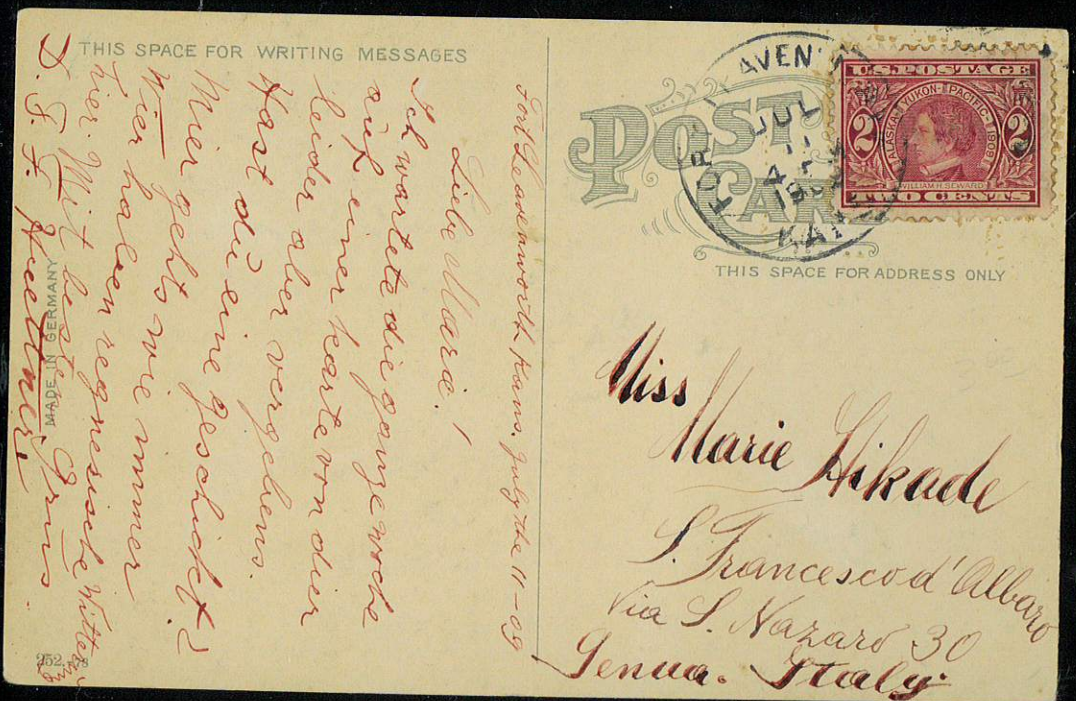 THIS SPACE FOR WRITING MESSAGES
Fort Leavenworth Kans. July the 11-09
Liebe Marie!
Ich wartete die ganze woche
auf einer karte von dier
leider aber vergebens.
Hast du eine geschickt?
Mier gehts wie immer
Wier haben regnesische Witterung
hier. Mit besten Gruss
D. F. F.
MADE IN GERMANY
252
POST CARD
AVEN
JUL
11
4 P
KAN
U.S. POSTAGE
ALASKA-YUKON-PACIFIC-1909
2 2
WILLIAM H. SEWARD
TWO CENTS
THIS SPACE FOR ADDRESS ONLY
Miss
Marie Hikade
S. Francesco d'Albaro
Via S. Nazaro 30
Genua. Italy.